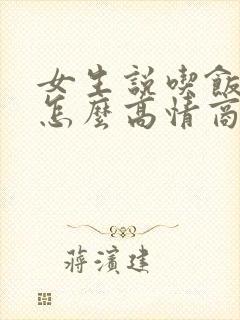 女生説喫飯
怎麼高情商
蔣濱建